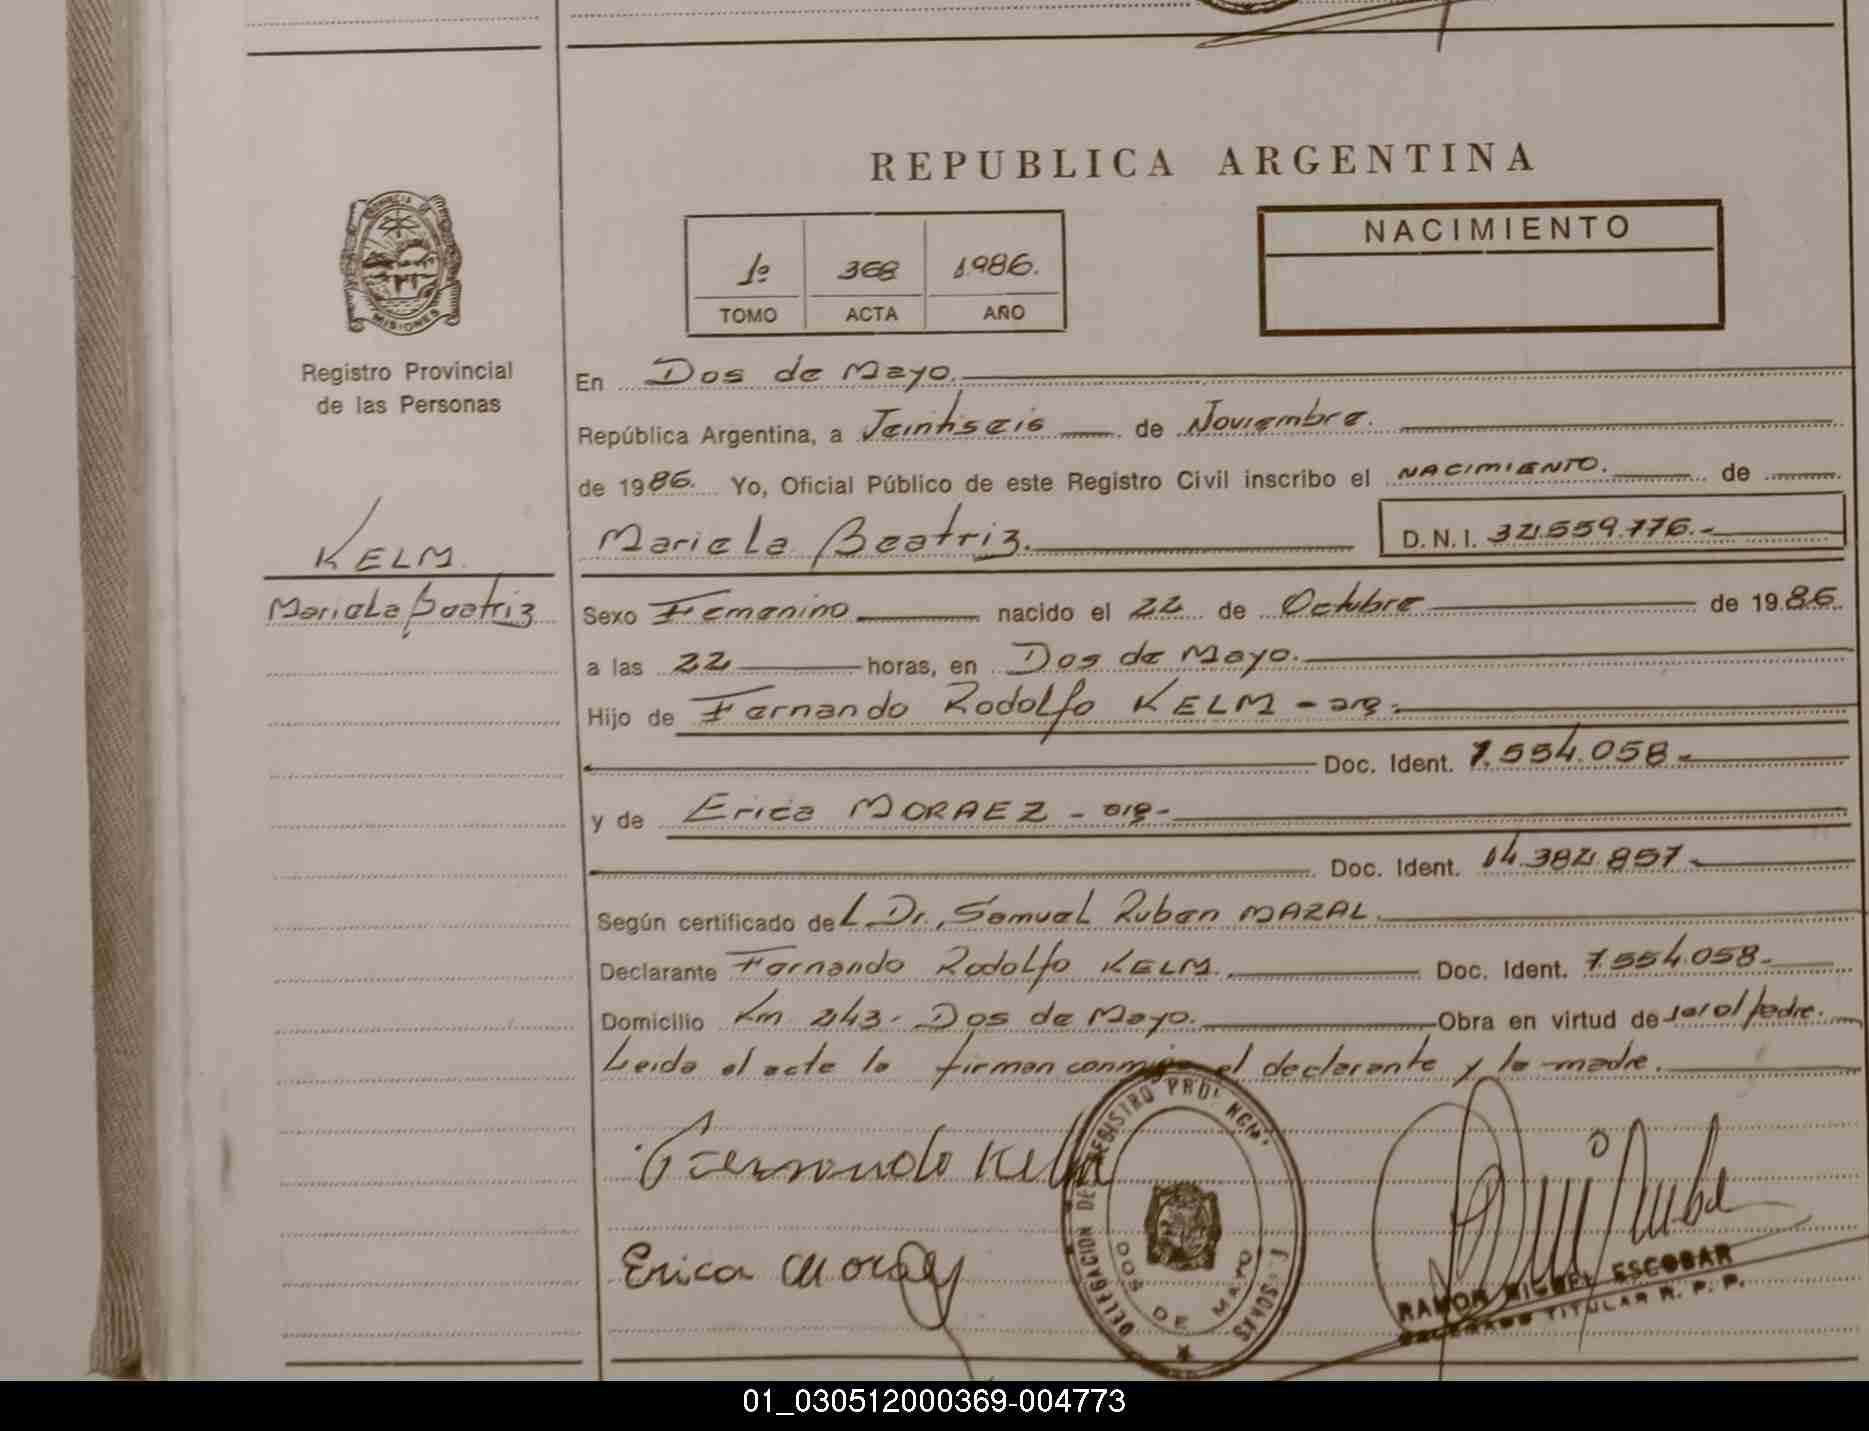 REPUBLICA ARGENTINA
PROVINCIA DE
MISIONES
Registro Provincial
de las Personas
1º 368 1986.
TOMO ACTA AÑO
NACIMIENTO
En Dos de Mayo.
República Argentina, a Veintiseis de Noviembre.
de 1986. Yo, Oficial Público de este Registro Civil inscribo el NACIMIENTO. de
Mariela Beatriz. D. N. I. 32.559.776.-
KELM.
Mariela Beatriz
Sexo Femenino nacido el 22 de Octubre de 1986.
a las 22 horas, en Dos de Mayo.
Hijo de Fernando Rodolfo KELM - arg.
Doc. Ident. 7.554.058-
y de Erica MORAEZ - arg-
Doc. Ident. 14.382.857-
Según certificado del Dr. Samuel Ruben MAZAL.
Declarante Fernando Rodolfo KELM. Doc. Ident. 7.554.058-
Domicilio Km 243- Dos de Mayo. Obra en virtud de ser el padre.
Leida el acta la firman conmigo el declarante y la madre.
Fernando Kelm
Erica
DELEGACION DE REGISTRO
DOS DE MAYO
RAMON MIGUEL ESCOBAR
DELEGADO TITULAR R. P. P.
01_030512000369-004773